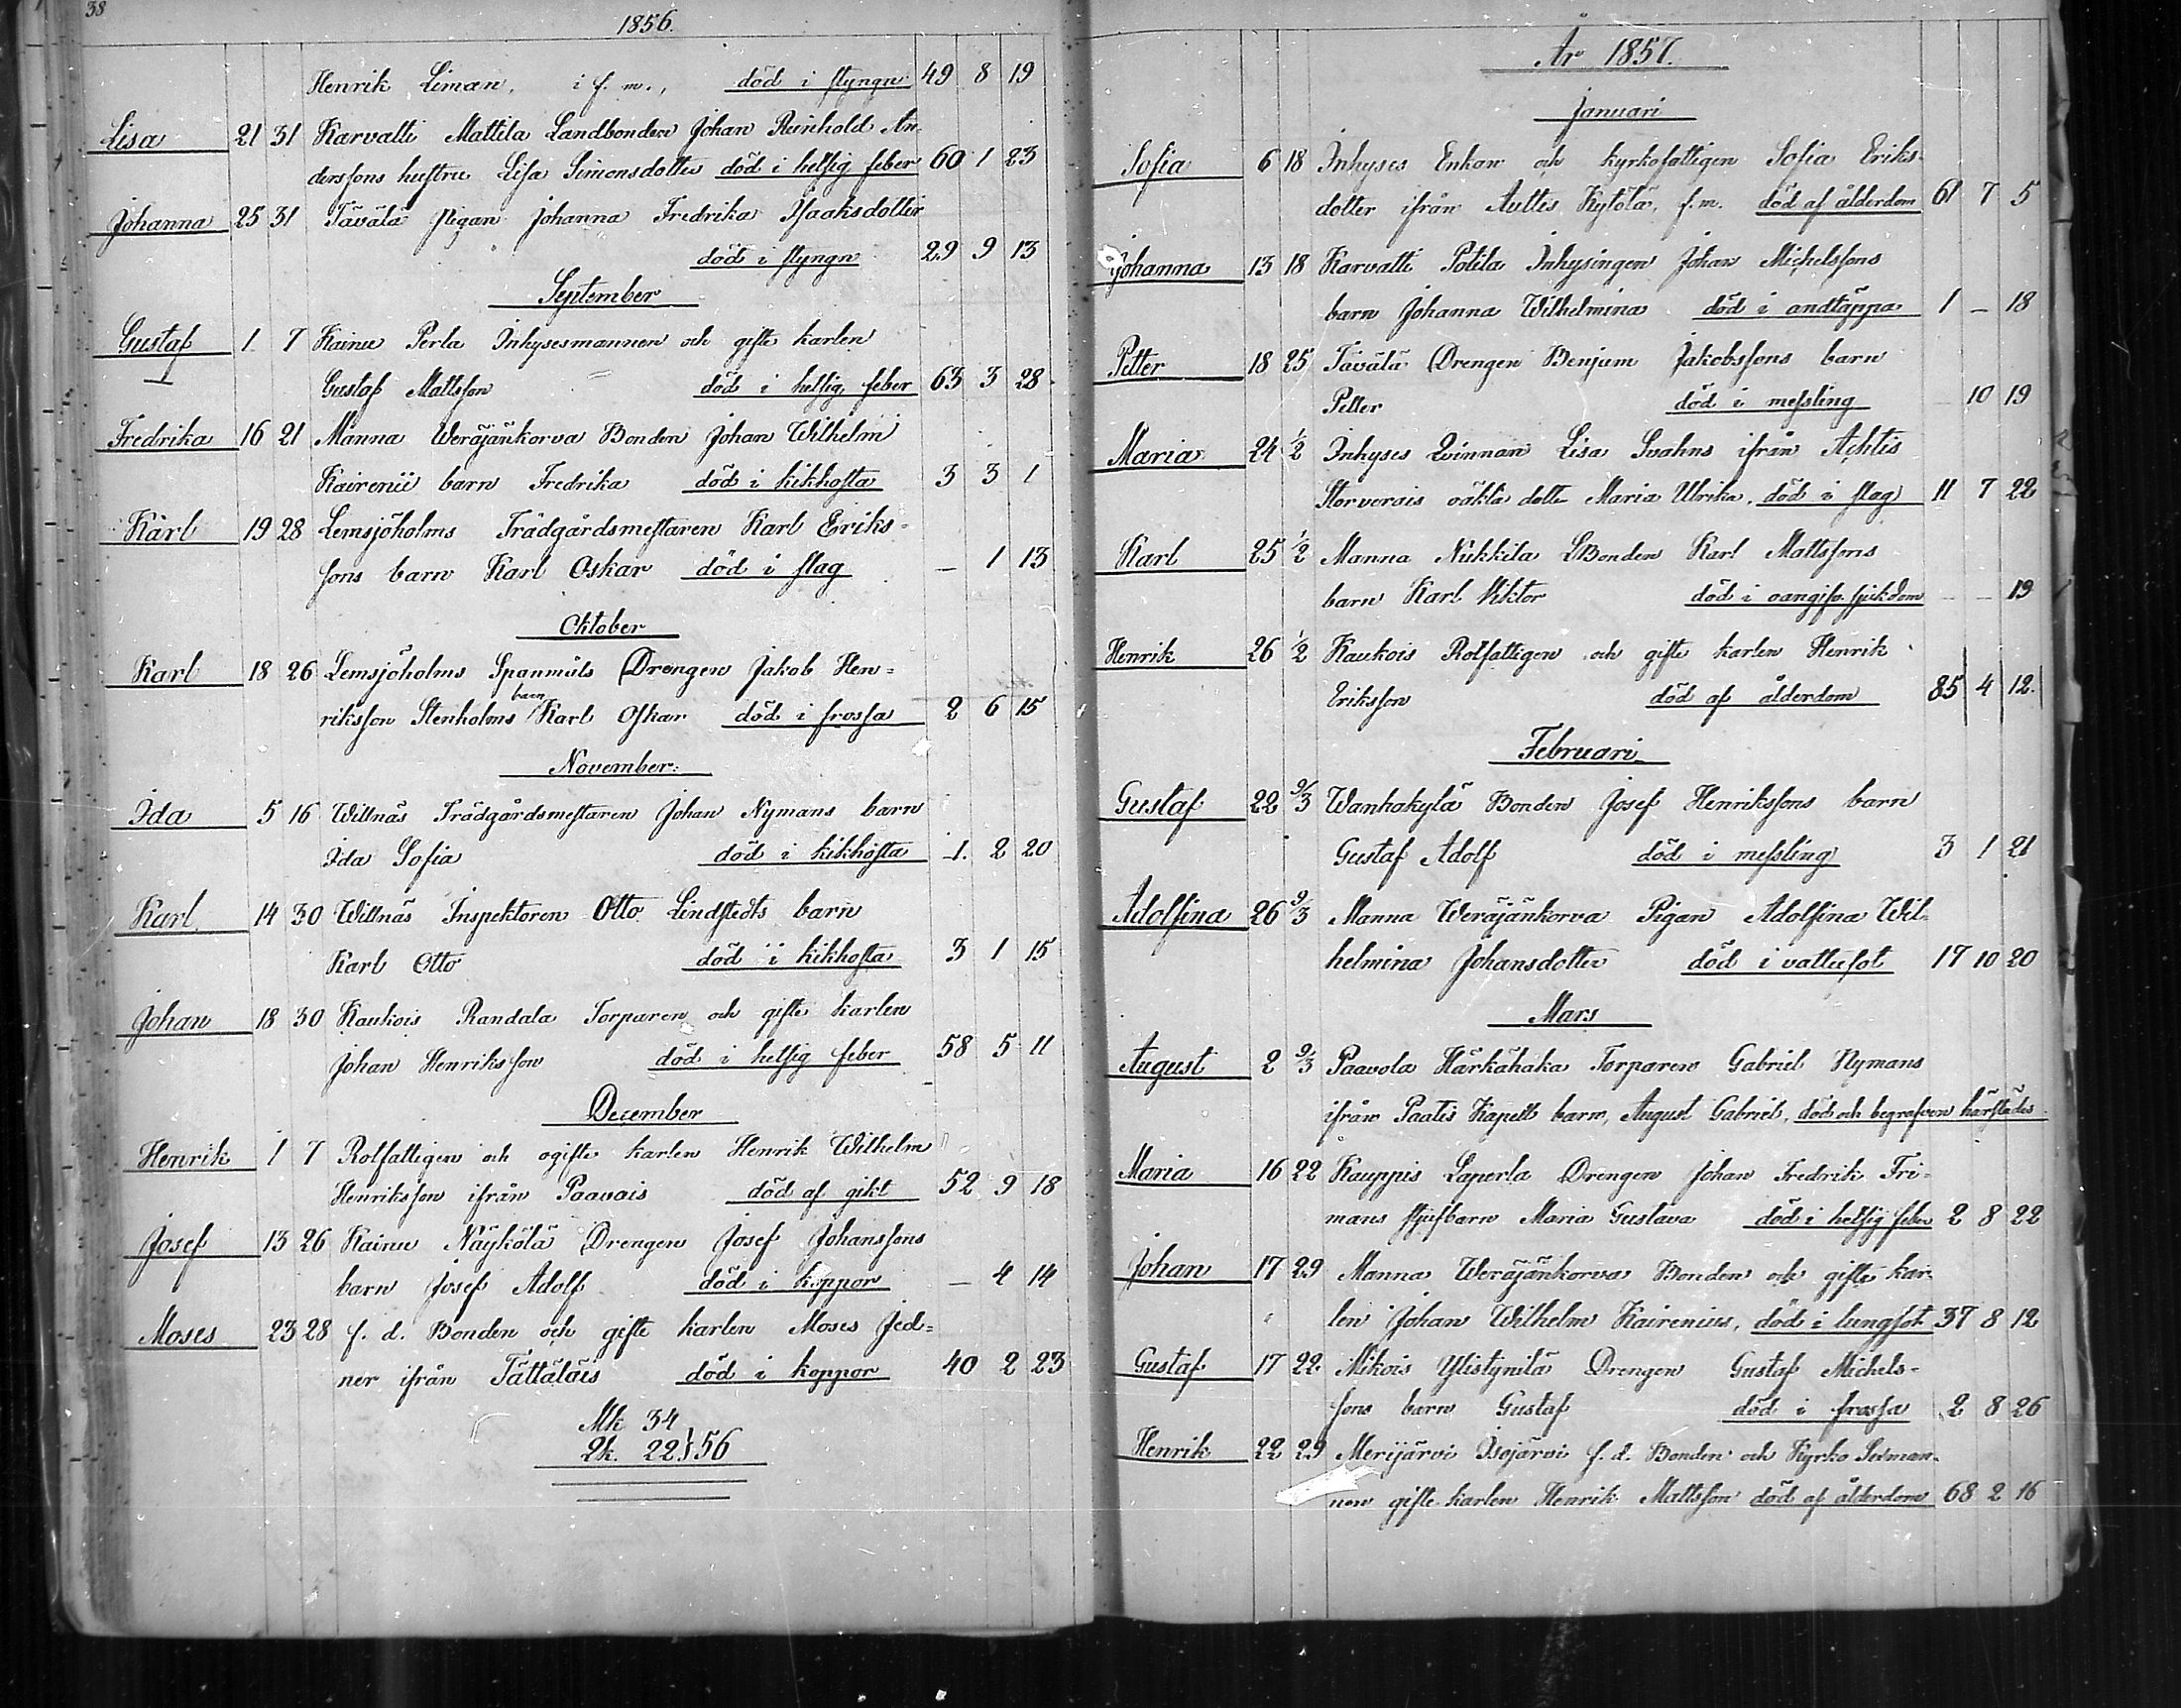 38
1856.
Henrik Liman, i f. m., död i styngn 49 8 19
Lisa 21 31 Karvatti Mattila Landbonden Johan Reinhold An-
derssons hustru Lisa Simonsdotter död i hetsig feber 60 1 23
Johanna 25 31 Tävälä Pigan Johanna Fredrika Isaaksdotter
död i styngn 29 9 13
September
Gustaf 1 7 Kainu Perla Inhysesmannen och gifte karlen
Gustaf Mattsson död i hetsig feber 63 3 28
Fredrika 16 21 Manna Weräjänkorva Bonden Johan Wilhelm
Kairenii barn Fredrika död i kikhosta 3 3 1
Karl 19 28 Lemsjöholms Trädgårdsmestaren Karl Eriks-
sons barn Karl Oskar död i slag — 1 13
Oktober
Karl 18 26 Lemsjöholms Spanmåls Drengen Jakob Hen=
rikssons Stenholms barn Karl Oskar död i frossa 2 6 15
November:
Ida 5 16 Willnäs Trädgårdsmestaren Johan Nymans barn
Ida Sofia död i kikhosta 1. 2 20
Karl 14 30 Willnäs Inspektoren Otto Lindstedts barn
Karl Otto död i kikhosta 3 1 15
Johan 18 30 Kaukois Randala Torparen och gifte karlen
Johan Henriksson död i hetsig feber 58 5 11
December
Henrik 1 7 Rotfattigen och ogifte karlen Henrik Wilhelm
Henriksson ifrån Paavais död af gikt 52 9 18
Josef 13 26 Kainu Näykölä Drengen Josef Johanssons
barn Josef Adolf död i koppor — 4 14
Moses 23 28 f. d. Bonden och gifte karlen Moses Jed=
ner ifrån Tättäläis död i koppor 40 2 23
Mk 34
Qk. 22 } 56
År 1857.
Januari
Sofia 6 18 Inhyses Enkan och kyrkofattigen Sofia Eriks-
dotter ifrån Auttis Kytölä, f.m. död af ålderdom 61 7 5
Johanna 13 18 Karvatti Potila Inhysingen Johan Michelssons
barn Johanna Wilhelmina död i andtäppa 1 — 18
Petter 18 25 Tävälä Drengen Benjam Jakobssons barn
Petter död i messling 10 19
Maria 24 1/2 Inhyses Qvinnan Lisa Svahns ifrån Achtis
Storverais oäkta dotter Maria Ulrika, död i slag 11 7 22
Karl 25 1/2 Manna Nukkila LBonden Karl Mattssons
barn Karl Viktor död i oangifv. sjukdom — — 19
Henrik 26 1/2 Kaukois Rotfattigen och gifte karlen Henrik
Eriksson död af ålderdom 85 4 12.
Februari
Gustaf 22 9/3 Wanhakylä Bonden Josef Henrikssons barn
Gustaf Adolf död i messling 3 1 21
Adolfina 26 9/3 Manna Weräjänkorva Pigan Adolfina Wil-
helmina Johansdotter död i vattusot 17 10 20
Mars
August 2 9/3 Paavola Härkähaka Torparen Gabriel Nymans
ifrån Paatis Kapell barn, August Gabriel, död och begrafven härstädes.
Maria 16 22 Kauppis Laperla Drengen Johan Fredrik Fri-
mans stjufbarn Maria Gustava död i hetsig feber 2 8 22
Johan 17 29 Manna Weräjänkorva Bonden och gifte kar-
len Johan Wilhelm Kairenius, död i lungsot 37 8 12
Gustaf 17 22 Mikois Ylistynilä Drengen Gustaf Michels-
sons barn Gustaf död i frossa 2 8 26
Henrik 22 29 Merijärvi Isojärvi f. d. Bonden och Kyrko Sexman-
nen gifte karlen Henrik Mattsson död af ålderdom 68 2 16